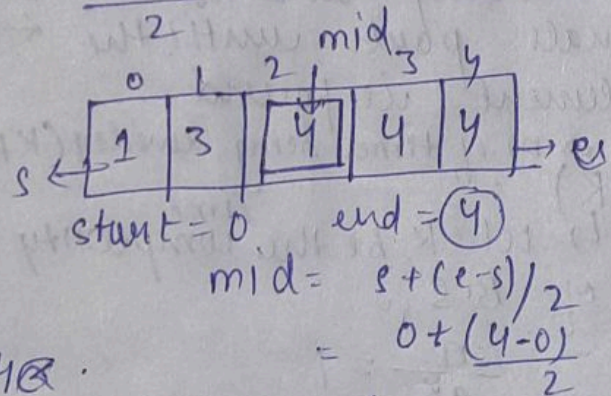 2
mid
0 1 2 3 4
s 1 3 4 4 4 es
start = 0 end = 4
mid = s+(e-s)/2
= 0+(4-0)
2